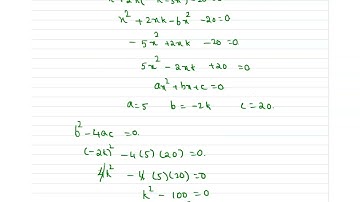 x² + 2xk - 6x² - 20 = 0
- 5x² + 2xk - 20 = 0
5x² - 2xk + 20 = 0
ax² + bx + c = 0
a = 5 b = -2k c = 20.
b² - 4ac = 0.
(-2k)² - 4(5)(20) = 0.
4k² - 4(5)(20) = 0
k² - 100 = 0